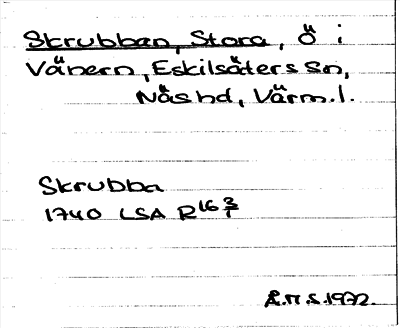 Skrubban, Stora, Ö i
Vänern, Eskilsäters sn,
Näs hd, Värm. l.
Skrubba
1740 LSA R16 3/1
Å.M.S. 1972.